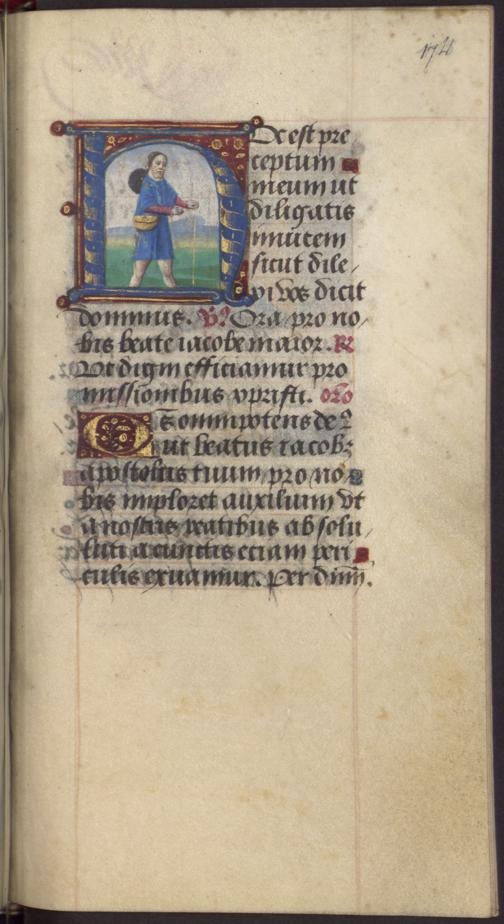 174
Hoc est pre
ceptum
meum ut
diligatis
inuicem
sicut dile
xi vos dicit
dominus. V. Ora pro no
bis beate iacobe maior. R
Vt digni efficiamur pro
missionibus xpristi. oro
Omnipotens de9
ut beatus iacobꝫ
apostolus tuum pro no
bis imploret auxilium Vt
a nostris reatibus absolu
luti a cunctis eciam peri
culis exuamur. Per dn̄m.